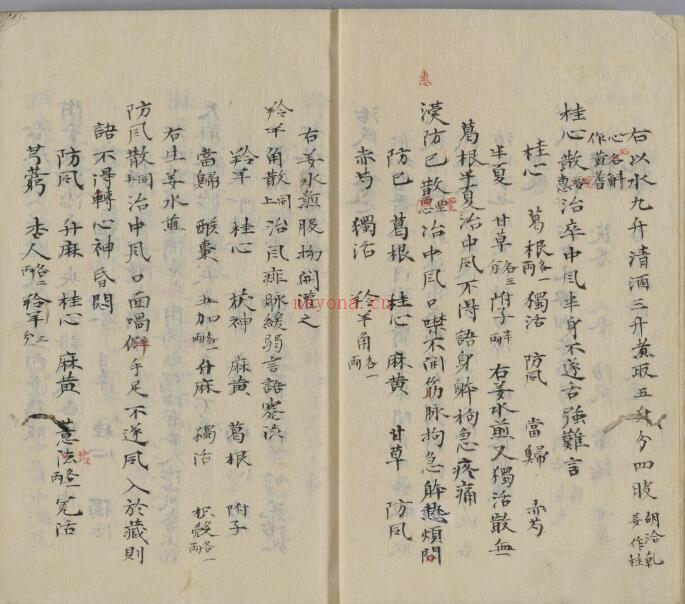 右以水九升清酒三升煮取五升分四服 胡洽乾姜作桂
心名解作黄耆
桂心散 聖惠 治卒中风半身不遂舌強難言
桂心 葛根各一两 獨活 防风 當歸 赤芍
半夏 甘草各三分 附子半两 右姜水煎又獨活散無
葛根半夏治中风不得語身躰拘急疼痛
漢防已散 聖惠 治中风口噤不開筋脉拘急躰熱煩悶
惠
防已 葛根 桂心 麻黄 甘草 防风
赤芍 獨活 羚羊角各一两
右姜水煎服拗開灌之
羚羊角散 同上 治风痱脉緩弱言語蹇澁
羚羊 桂心 茯神 麻黄 葛根 附子
當歸 酸棗 五加各一两 升麻 獨活 枳殻各一两
右生姜水煎
防风散 同 治中风口面喎僻手足不遂风入於藏則
語不得轉心神昏悶
防风 升麻 桂心 麻黄 薏 羌活
芎藭 杏人 羚羊
nayona.cn